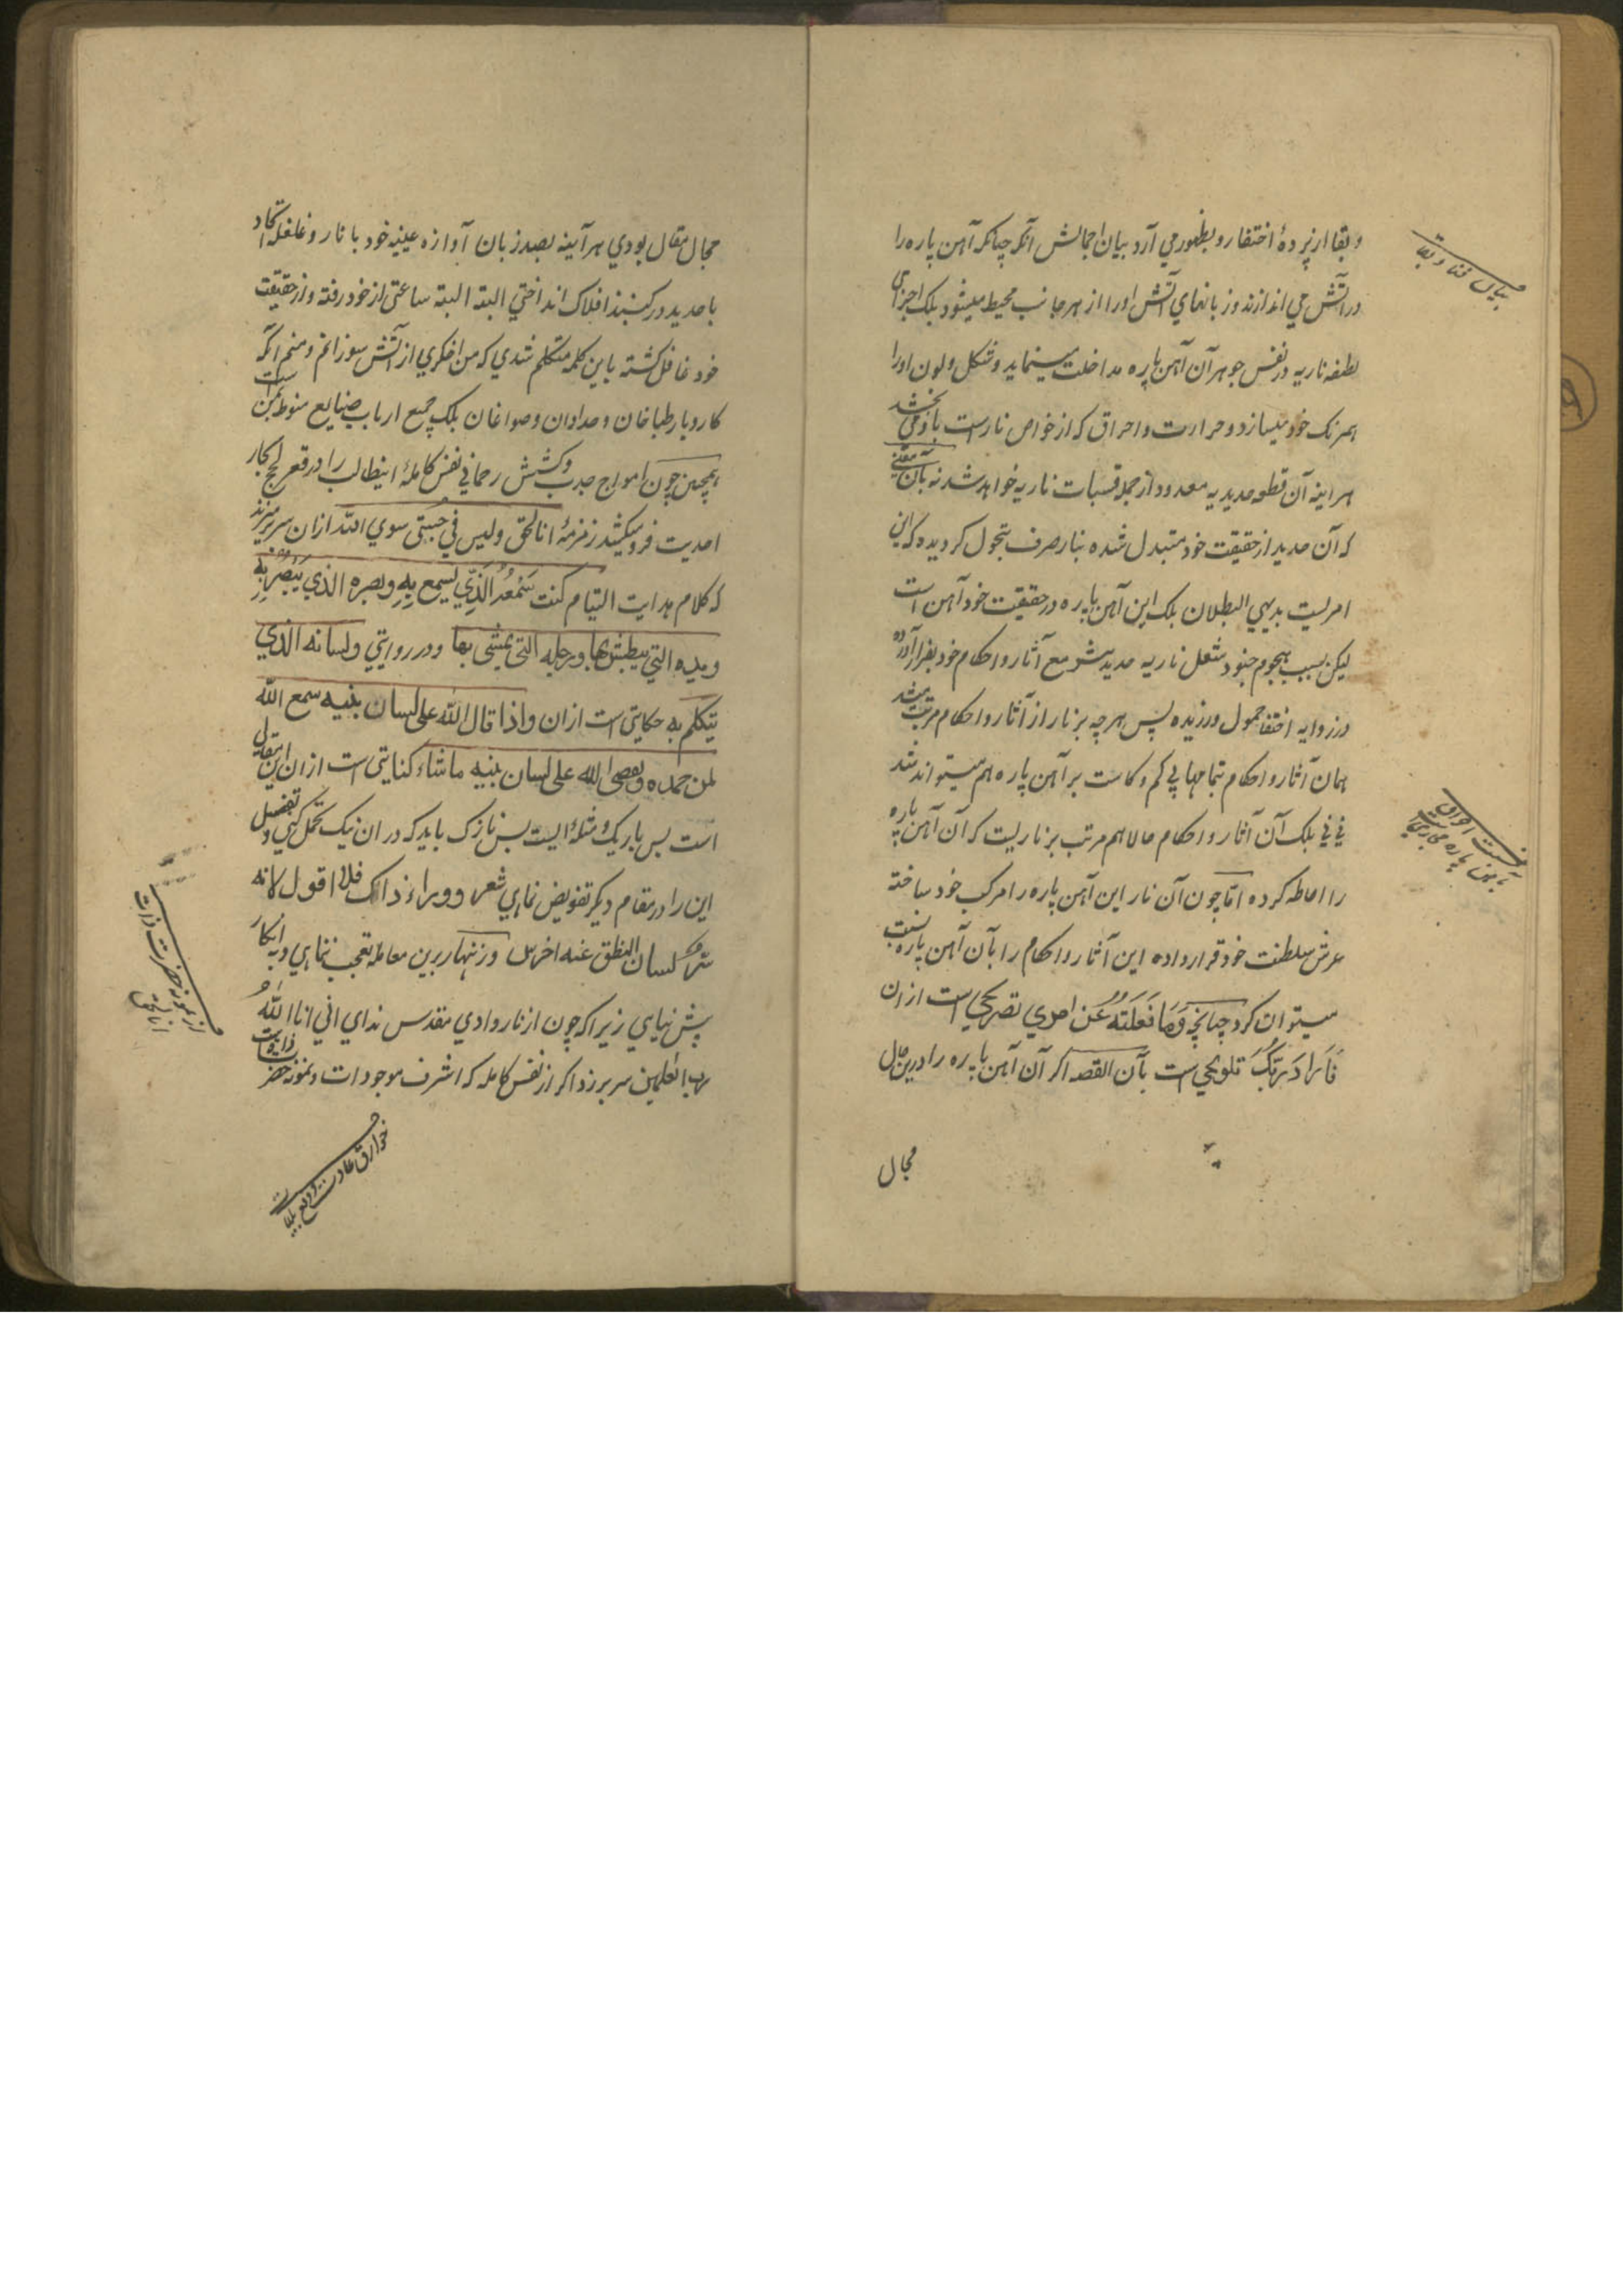 و بقا از پردهٔ اختفا رو بظهور می آرد بیان اجمالش آنکه چنانکه آهن پاره را
در آتش می اندازند و زبانهای آتش او را از هر جانب محیط میشود بلکه اجزای
لطیفه ناریه در نفس جوهر آن آهن پاره مداخلت مینماید و شکل و لون او را
همرنگ خود میسازد و حرارت و احراق که از خواص نار است باو می بخشد
هر اینه آن قطعه حدیدیه معدود از جمله قبسات ناریه خواهد شد نه بآن معنی
که آن حدید از حقیقت خود متبدل شده بنار صرف متحول کردیده که این
امریست بدیهی البطلان بلکه این آهن پاره در حقیقت خود آهن است
لیکن بسبب هجوم جنود شعل ناریه حدیدیتش مع آثار و احکام خود بفرار آورده
در زوایه اختفا خمول ورزیده پس هر چه بر نار از آثار و احکام مرتب میشد
همان آثار و احکام بتمامها بی کم و کاست بر آهن پاره هم میتواند شد
نی نی بلکه آن آثار و احکام حالا هم مرتب بر ناریست که آن آهن پاره
را احاطه کرده اما چون آن نار این آهن پاره را مرکب خود ساخته
عرش سلطنت خود قرار داده این آثار و احکام را بآن آهن پاره نسبت
میتوان کرد چنانچه وَمَا فَعَلْتُهُ عَن امری تصریحی است ازان
فَاَرَادَ رَبُّکَ تلویحی است بآن القصه اکر آن آهن پاره را درین حال
مجال
بیان فنا و بقا
نسبت احراق
بآهن پاره مجازی
مجال مقال بودی هر آینه بصد زبان آوازه عینیه خود با نار و غلغلهٔ اتحاد
با حدید در کنبذ افلاک انداختی البته البته ساعتی از خود رفته و از حقیقت
خود غافل کشته باین کلمه متکلم شدی که من اخکری از آتش سوزانم و منم آنکه
کار و بار طباخان و حدادان و صواغان بلکه جمیع ارباب صنایع منوط بمن است
همچنین چون امواج جذب و کشش رحمانی نفس کاملهٔ اینطالب را در قعر لجج بحار
احدیت فرو میکشد زمزمهٔ انا الحق و لیس فی جبتی سوی الله ازان سر برمیزند
که کلام هدایت التیام کنت سَمْعُهُ الَّذِی یَسْمَع بِهِ وبصره الذی یُبْصُرُ بِهِ
ویده التی یبطش بها ورجله التی یمشی بها و در روایتی ولسانه الذی
یتکلم به حکایتی است ازان واذا قال الله علی لسان نبیه سمع الله
لمن حمده ویقضی الله علی لسان نبیه ماشاء کنایتی است ازان این مقالی
است بس باریک و مسئله ایست بس نازک باید که دران نیک تامل کنی و تفصیل
این را در مقام دیکر تفویض نمای شعر و وراء ذاک فلا اقول لانه
سرٌ لسان النطق عنه اخرس و زنهار برین معامله تعجب ننمای و بانکار
پیش نیایی زیرا که چون از نار وادی مقدس ندای انی انا اللهُ
رب العلمین سر برزد اکر از نفس کامله که اشرف موجودات و نمونه حضرت ذاتست
خوارق عادت و دفع بلیات
از نمونه حضرت ذات
انا الحق